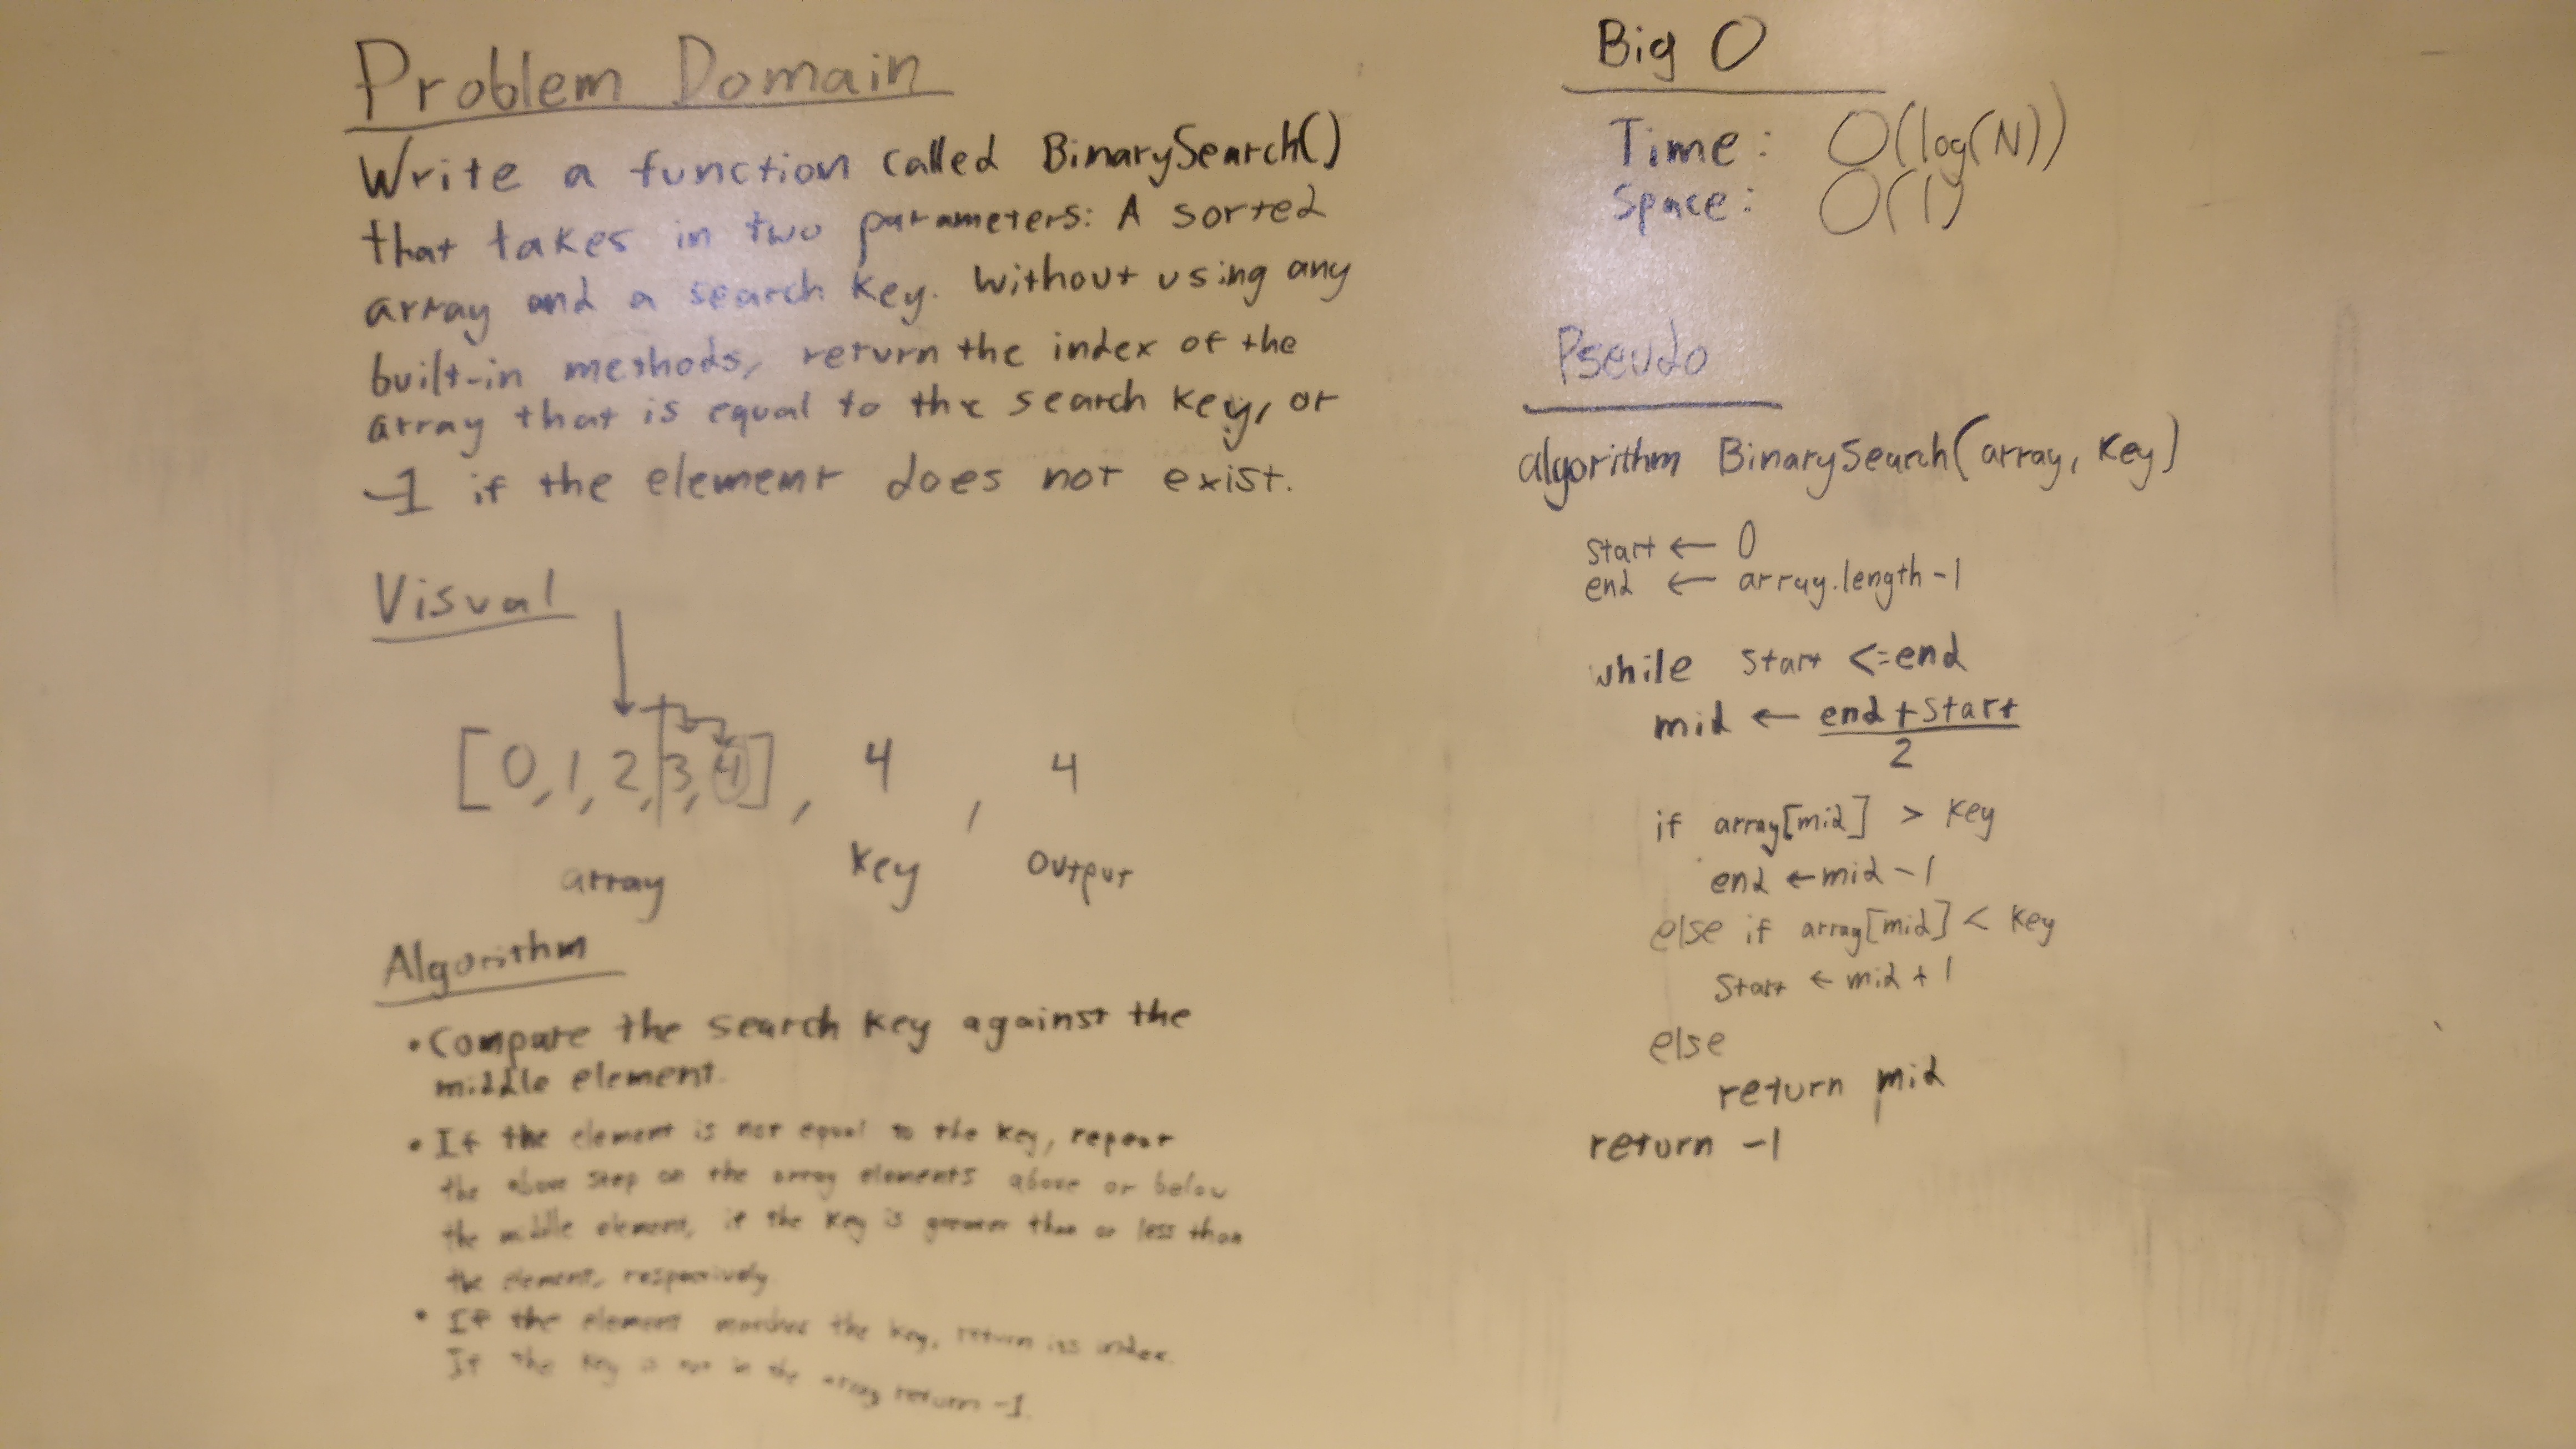 Problem Domain
Write a function called BinarySearch()
that takes in two parameters: A sorted
array and a search key. Without using any
built-in methods, return the index of the
array that is equal to the search key, or
-1 if the element does not exist.
Visual
[0, 1, 2, 3, 4], 4, 4
array key output
Algorithm
• Compare the search key against the
middle element.
• If the element is not equal to the key, repeat
the above step on the array elements above or below
the middle element, if the key is greater than or less than
the element, respectively
• If the element matches the key, return its index.
If the key is not in the array return -1.
Big O
Time: O(log(N))
Space: O(1)
Pseudo
algorithm BinarySearch(array, key)
start ← 0
end ← array.length-1
while start <= end
mid ← end + start
2
if array[mid] > key
end ← mid - 1
else if array[mid] < key
start ← mid + 1
else
return mid
return -1